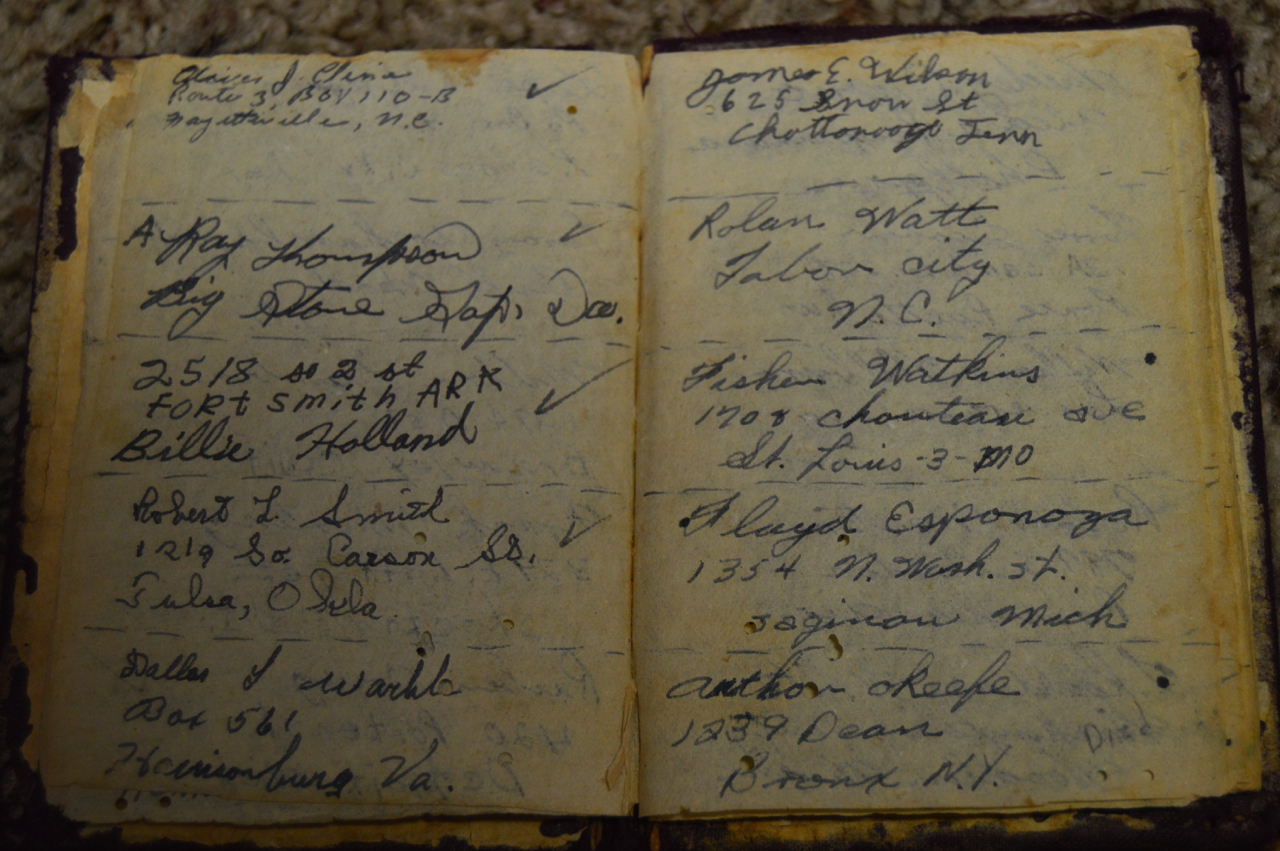 J. Cline
Route 3, BOX 110-B
Fayetteville, N.C.
A. Ray Thompson
Big Stone Gap,
2518 so 2 st
FORt smith ARK
Billie Holland
Robert L. Smith
1219 So. Carson St.
Tulsa, Okla.
Dallas
Box 561
Harrisonburg Va.
James E. Wilson
625 Snow St
Chattonooga Tenn
Rolan Watt
Tabor city
N.C.
Fisher Watkins
1708 chouteau ave
St. Louis-3-MO
Floyd Esponoza
1354 N. Wash. st.
saginaw Mich
Okeefe
1239 Dean
Bronx N.Y.